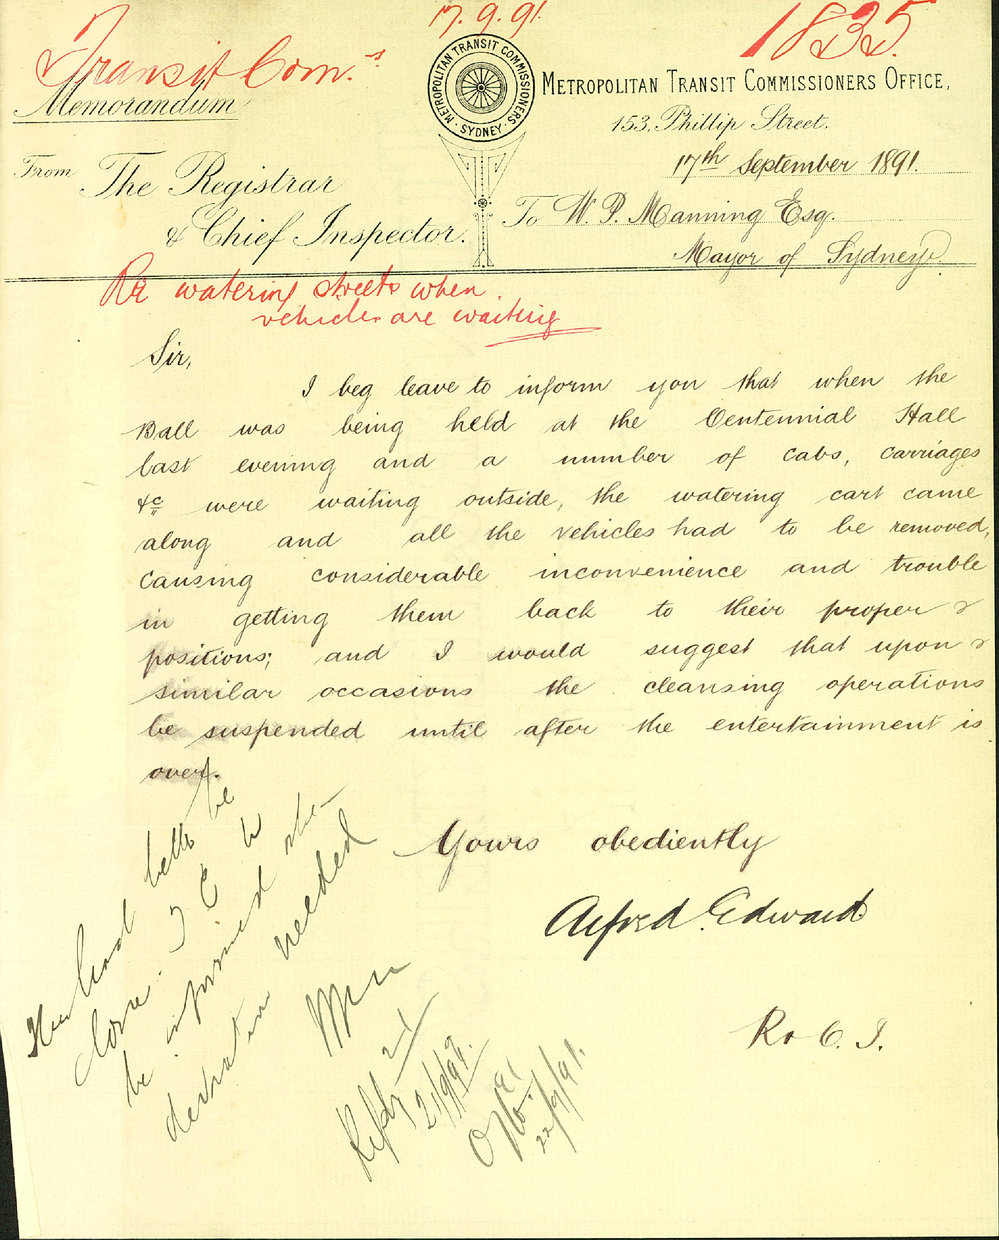 17.9.91.
1835.
Transit Com.rs
Memorandum
METROPOLITAN TRANSIT COMMISSIONERS
· SYDNEY ·
METROPOLITAN TRANSIT COMMISSIONERS OFFICE,
153, Phillip Street.
17th September 1891.
From The Registrar
& Chief Inspector.
To W. P. Manning Esq.
Mayor of Sydney.
Re watering streets when
vehicles are waiting
Sir,
I beg leave to inform you that when the
Ball was being held at the Centennial Hall
last evening and a number of cabs, carriages
&c were waiting outside, the watering cart came
along and all the vehicles had to be removed,
causing considerable inconvenience and trouble
in getting them back to their proper
positions; and I would suggest that upon
similar occasions the cleansing operations
be suspended until after the entertainment is
over.
Yours obediently
Alfred Edward
R & C. I.
had better be
done. I C to
be informed
needed
21/9/91.
22/9/91.